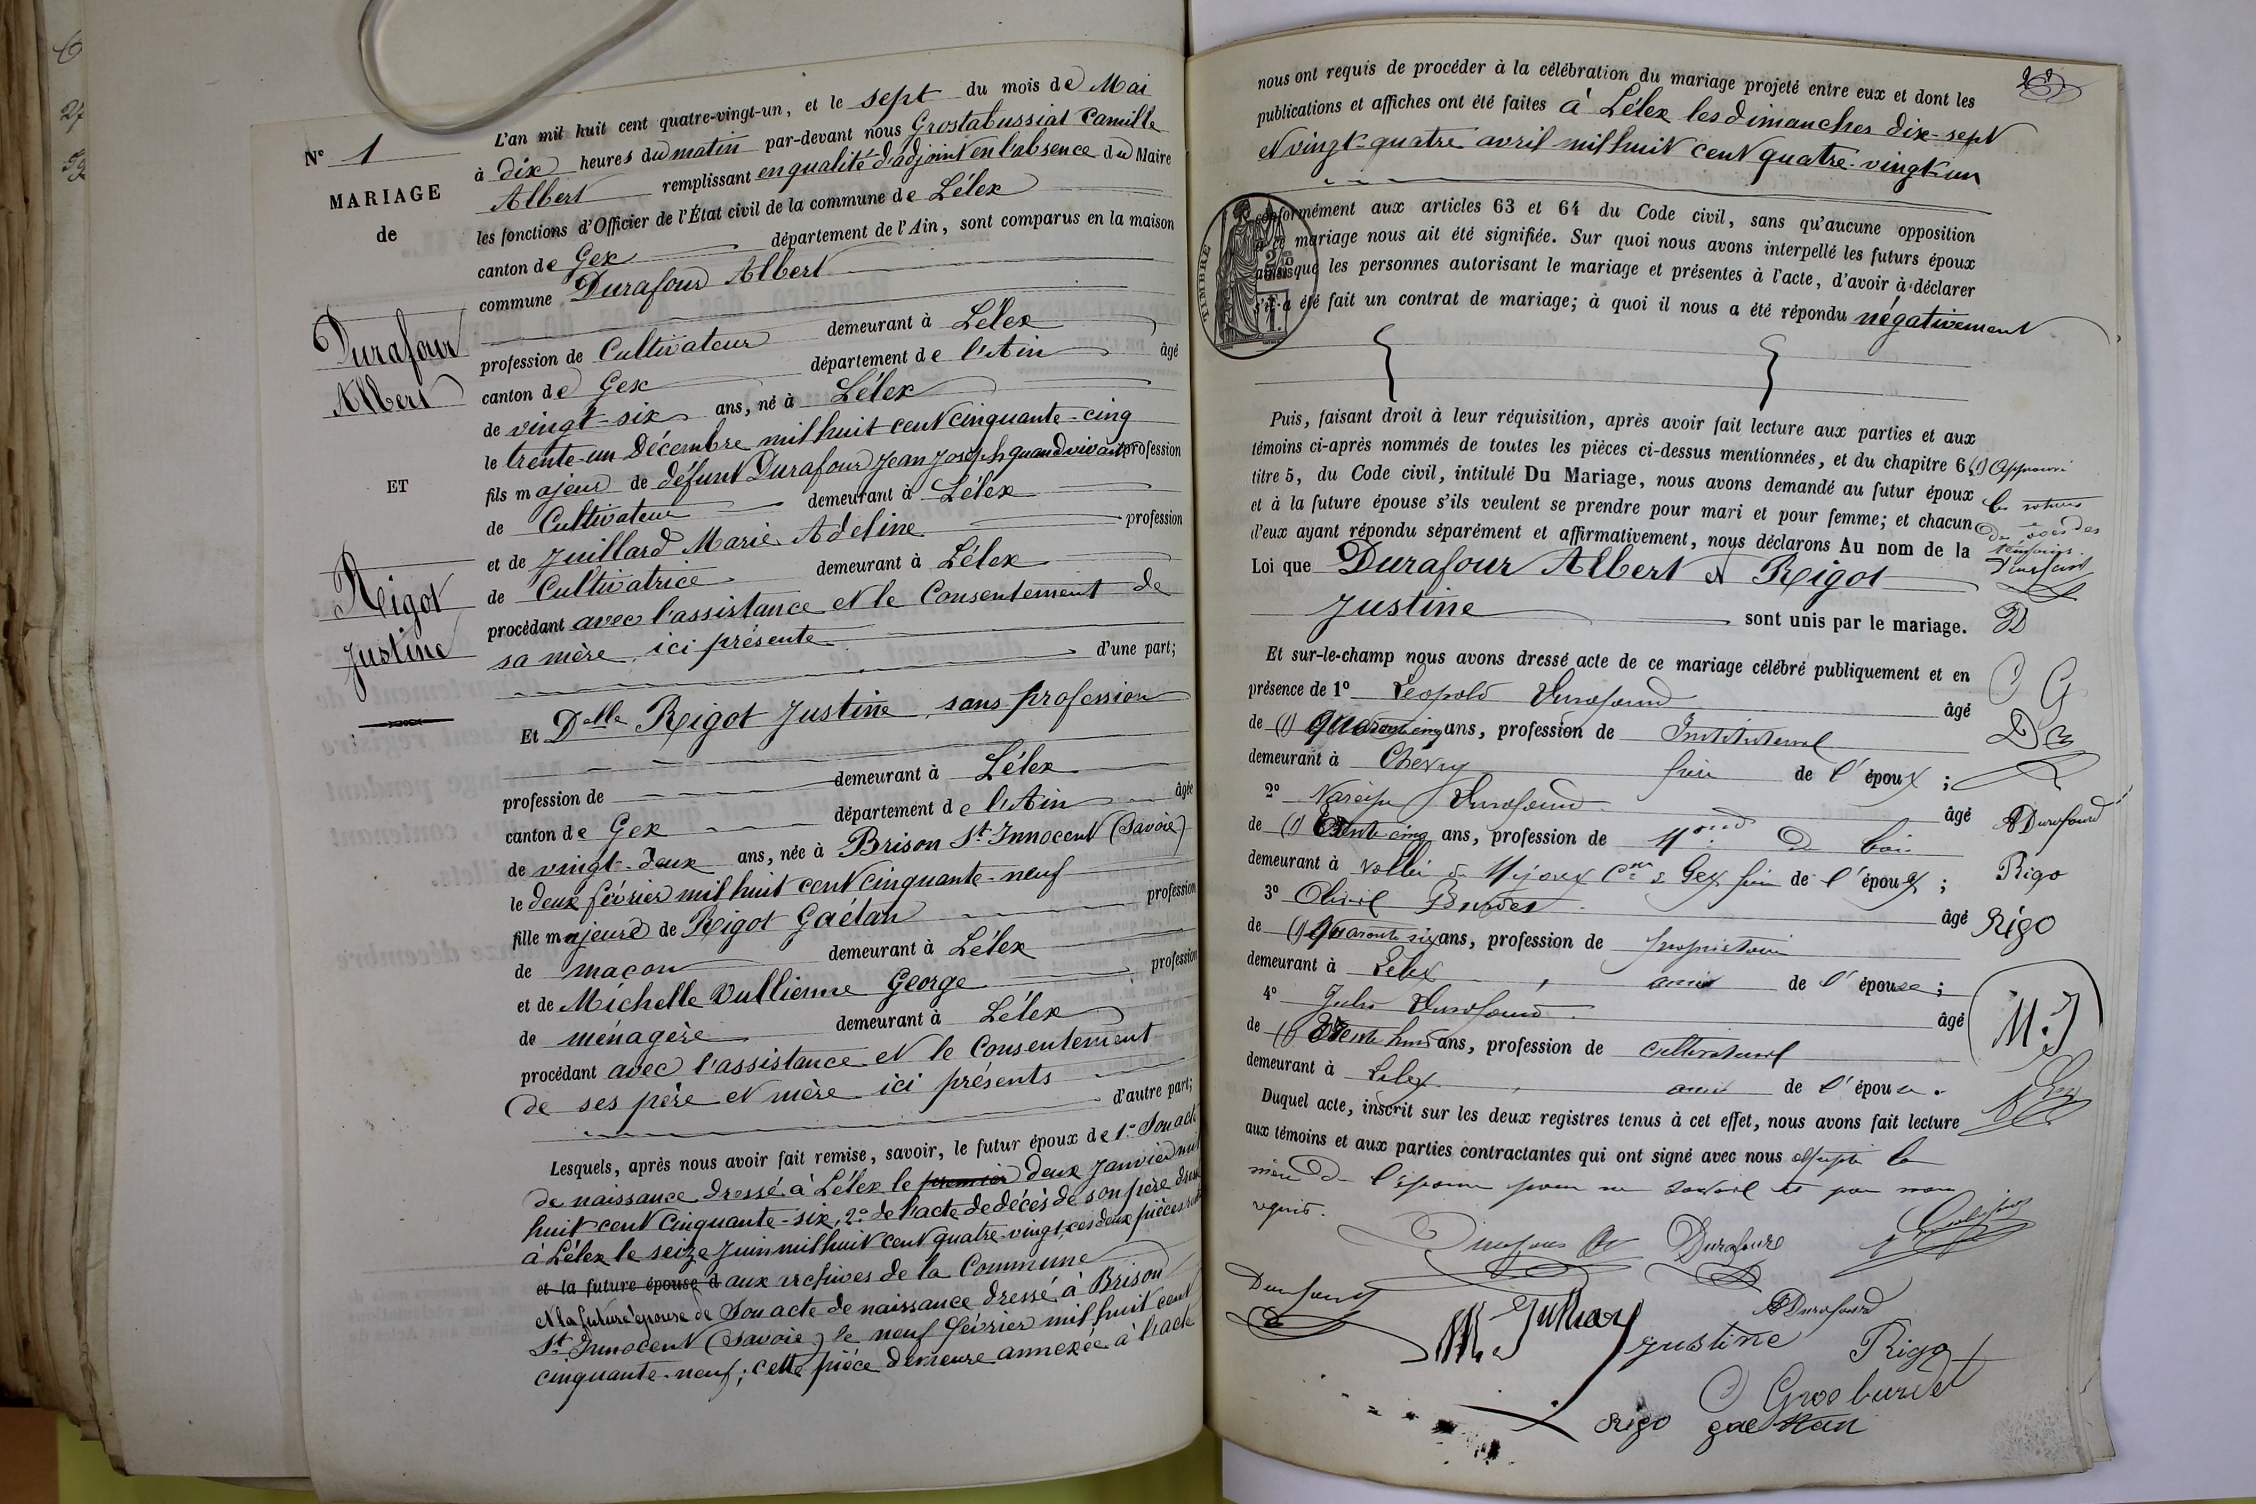 N° 1
MARIAGE
de
Durafour
Albert
ET
Rigot
Justine
L'an mil huit cent quatre-vingt-un, et le sept du mois de Mai
à dix heures du matin par-devant nous Grostabussiat Camille
Albert remplissant en qualité d'adjoint en l'absence du Maire
les fonctions d'Officier de l'État civil de la commune de Lélex
canton de Gex département de l'Ain, sont comparus en la maison
commune Durafour Albert
profession de Cultivateur demeurant à Lélex
canton de Gex département de l'Ain âgé
de vingt-six ans, né à Lélex
le trente-un Décembre mil huit cent cinquante-cinq
fils majeur de défunt Durafour Jean Joseph quand vivait profession
de Cultivateur demeurant à Lélex
et de Juillard Marie Adeline profession
de Cultivatrice demeurant à Lélex
procédant avec l'assistance et le Consentement de
sa mère, ici présente
d'une part;
Et Delle Rigot Justine, sans profession
profession de demeurant à Lélex
canton de Gex département de l'Ain âgée
de vingt-deux ans, née à Brison St Innocent (Savoie)
le deux février mil huit cent cinquante-neuf
fille majeure de Rigot Gaétan profession
de maçon demeurant à Lélex
et de Michelle Vullienne George profession
de ménagère demeurant à Lélex
procédant avec l'assistance et le Consentement
de ses père et mère ici présents
d'autre part;
Lesquels, après nous avoir fait remise, savoir, le futur époux de 1° Son acte
de naissance dressé à Lélex le premier deux Janvier mil
huit cent Cinquante-six, 2° de l'acte de décès de son père
à Lélex le seize Juin mil huit cent quatre-vingt, ces deux pièces
et la future épouse d aux archives de la Commune
et la future épouse de Son acte de naissance dressé à Brison
St Innocent (Savoie) le neuf février mil huit cent
cinquante-neuf; cette pièce demeure annexée à l'acte
nous ont requis de procéder à la célébration du mariage projeté entre eux et dont les
publications et affiches ont été faites à Lélex les dimanches dix-sept
et vingt-quatre avril mil huit cent quatre-vingt-un
TIMBRE
conformément aux articles 63 et 64 du Code civil, sans qu'aucune opposition
à ce mariage nous ait été signifiée. Sur quoi nous avons interpellé les futurs époux
ainsi que les personnes autorisant le mariage et présentes à l'acte, d'avoir à déclarer
s'il a été fait un contrat de mariage; à quoi il nous a été répondu négativement
Puis, faisant droit à leur réquisition, après avoir fait lecture aux parties et aux
témoins ci-après nommés de toutes les pièces ci-dessus mentionnées, et du chapitre 6,
titre 5, du Code civil, intitulé Du Mariage, nous avons demandé au futur époux
et à la future épouse s'ils veulent se prendre pour mari et pour femme; et chacun
d'eux ayant répondu séparément et affirmativement, nous déclarons Au nom de la
Loi que Durafour Albert et Rigot
Justine sont unis par le mariage.
Et sur-le-champ nous avons dressé acte de ce mariage célébré publiquement et en
présence de 1° Léopold Durafour âgé
de (1) quarante cinq ans, profession de Instituteur
demeurant à Chevry frère de l'époux;
2° Narcisse Durafour âgé
de (1) Trente cinq ans, profession de Md de bois
demeurant à Mijoux Con de Gex frère de l'époux;
3° Burdet âgé
de (1) quarante six ans, profession de propriétaire
demeurant à Lélex ami de l'épouse;
4° Jules Durafour âgé
de (1) Trente huit ans, profession de cultivateur
demeurant à Lélex ami de l'épouse.
Duquel acte, inscrit sur les deux registres tenus à cet effet, nous avons fait lecture
aux témoins et aux parties contractantes qui ont signé avec nous excepté la
mère de l'épouse pour ne savoir de ce
requis.
(1) Approuvé
témoins
Durafour
ADurafour
Rigo
Rigo
M. J
Durafour
Durafour
M. Julliard
ADurafour
Justine Rigo
Grosburdet
Rigo gaetan